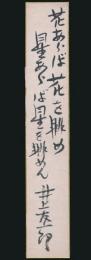 花あらば花を眺め
星あらば星を眺めん
井上友一郎